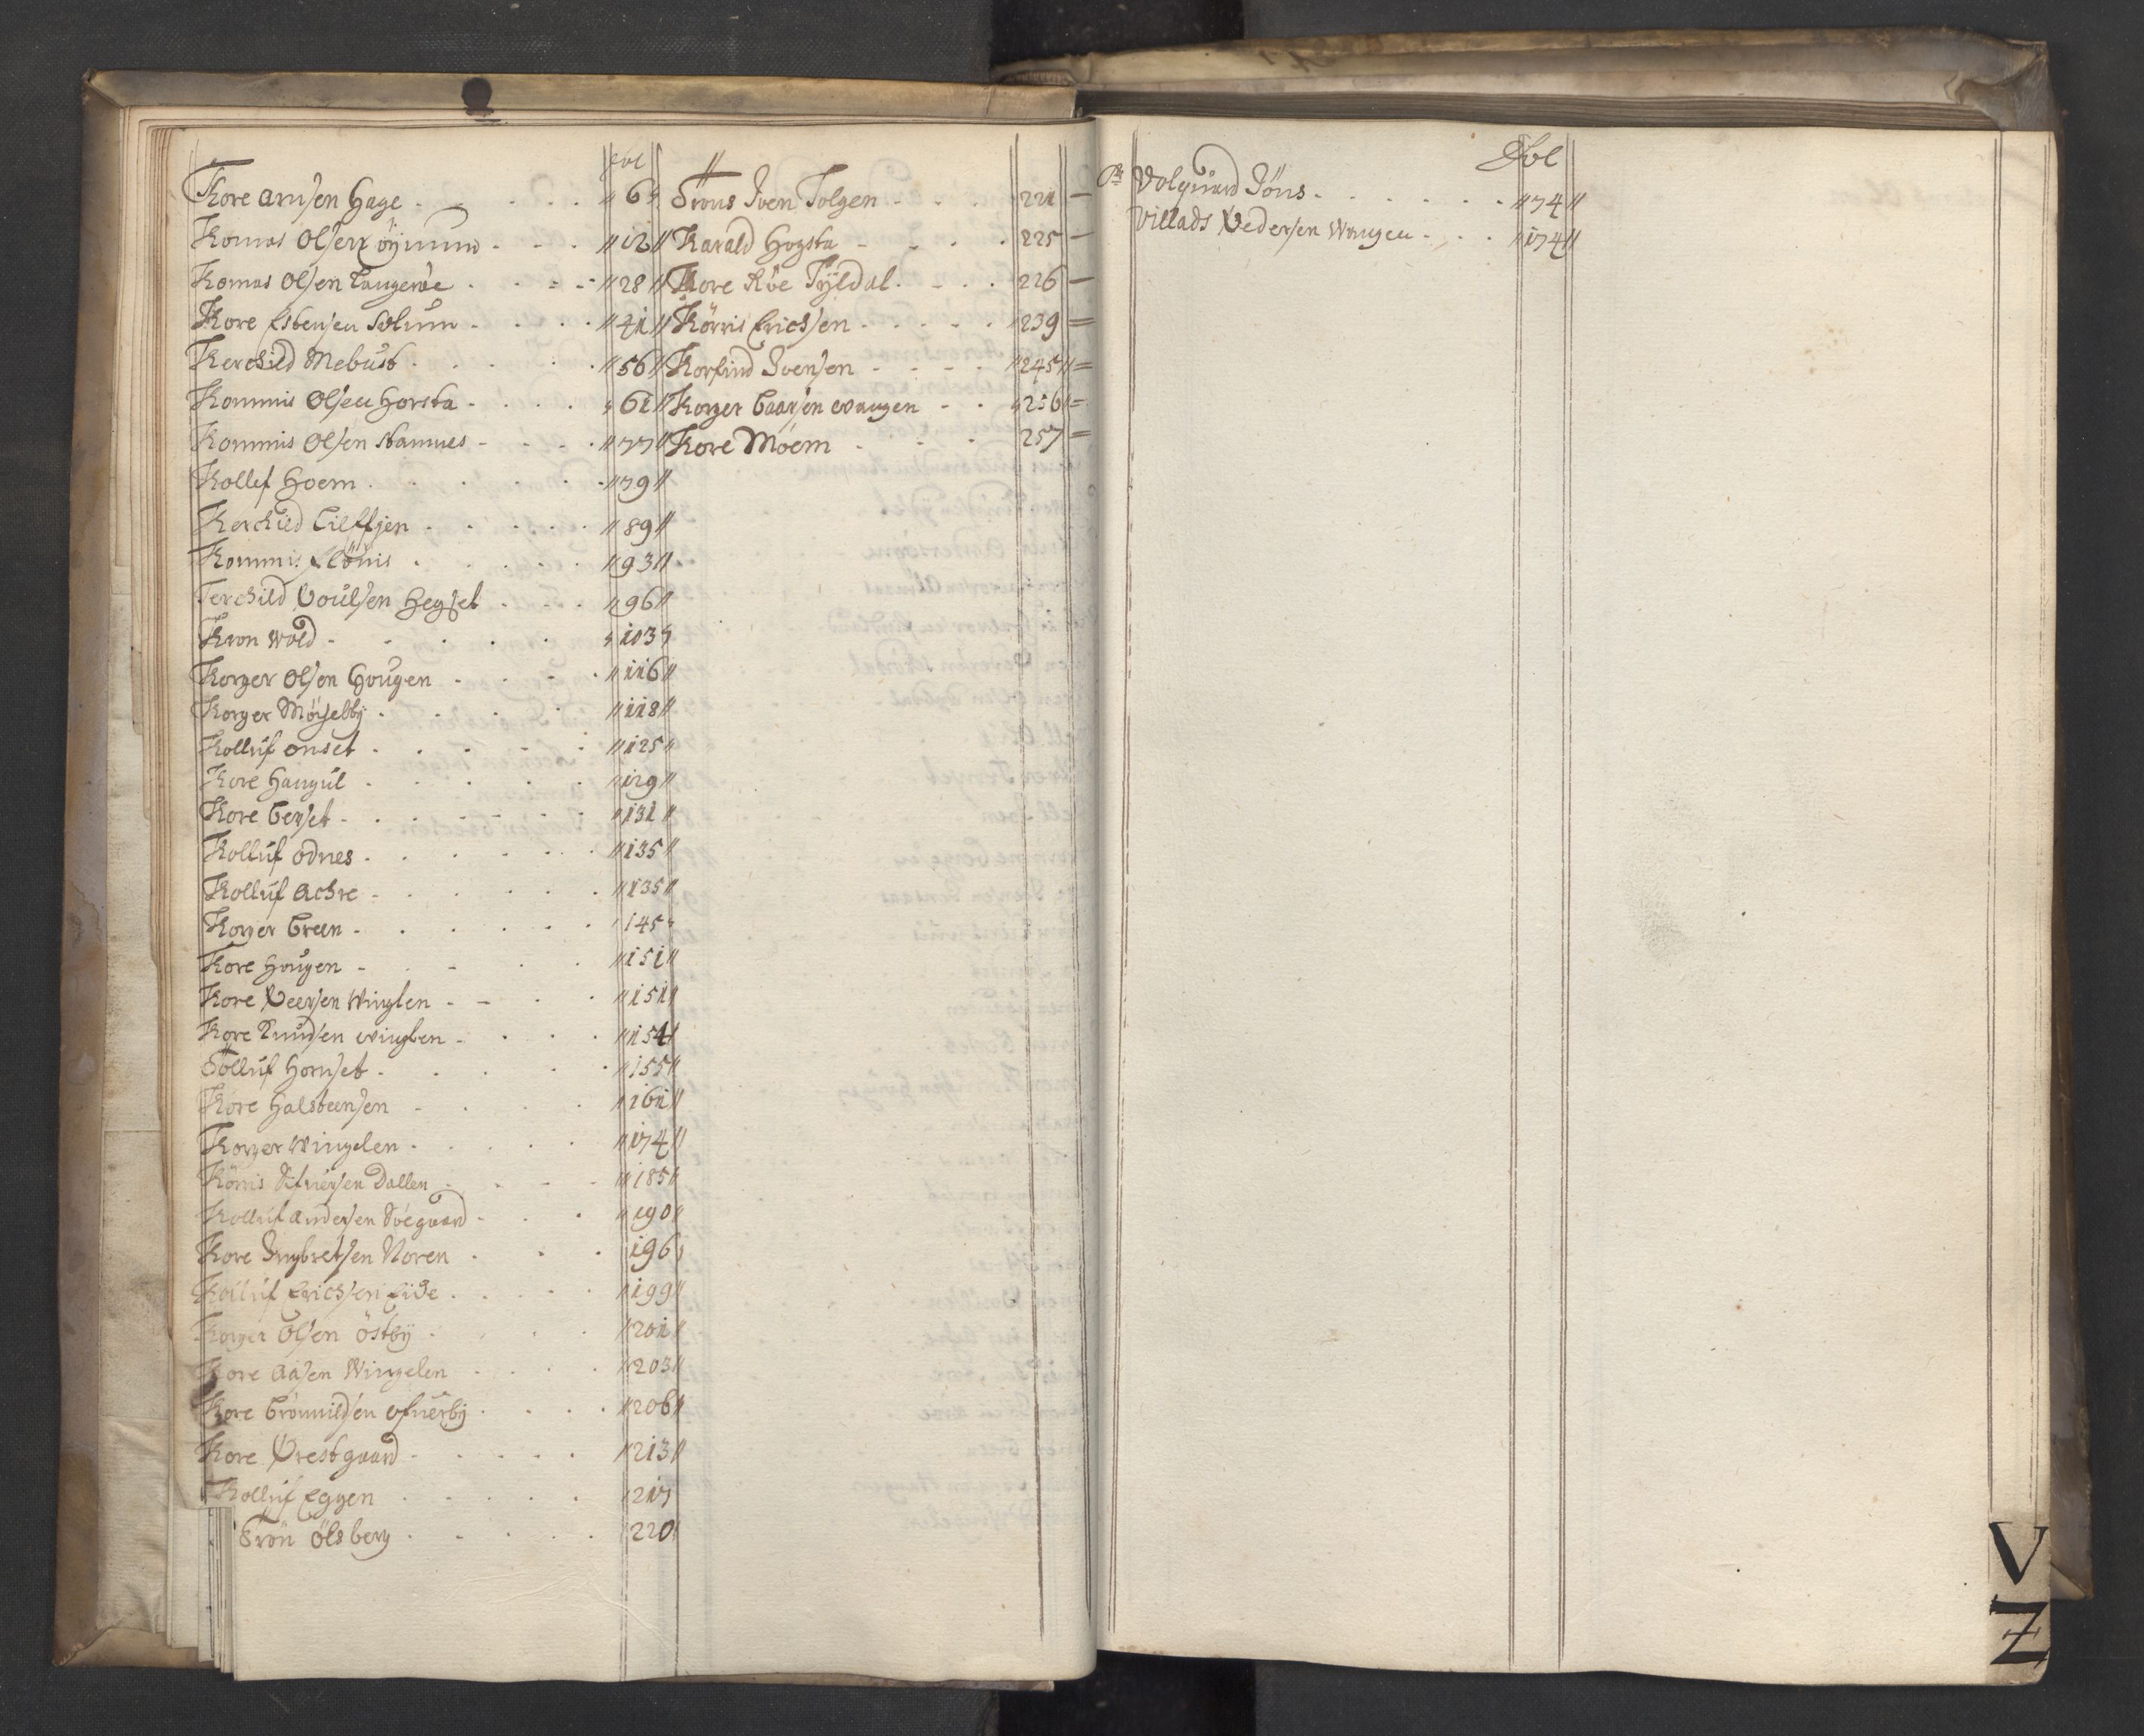 fol
Tore Arnsen Hage 6
Tomas Olsen öÿmmn 12
Tomas Olsen Tangenee 28
Tore Esbensen Solùm 41
Terchild Mebùst 56
Tommis Olsen Horsta 61
Tommis Olsen Stamnes 77
Tollef Hoem 79
Terchild Eilffsen 89
Tommis 93
Terchild Poùlsen Hegset 96
Tron Wold 103
Torger Olsen Hoùgen 116
Torger Möÿselbÿ 118
Tollùf Onset 125
Tore Haugùl 129
Tore Berset 131
Tollùf Odnes 135
Tollùf Achre 135
Torger Breen 145
Tore Hoùgen 151
Tore Peersen Winglen 151
Tore Knùdsen Winglen 154
Tollùf Hornset 155
Tore Halsteensen 161
Torger Wingelen 174
Törris Sifùersen Dallen 185
Tollùf Andersen Söegaard 190
Tore Ingbretsen Noren 196
Tollùf Ericksen Eide 199
Torger Olsen östbÿ 201
Tore Aasen Wingelen 203
Tore Brönnildsen ofùerbÿ 206
Tore Prestgaard 213
Tollùf Eggen 217
Trön ölsberg 220
Trons Iven Tolgen 221
Harald Hogsta 225
Tore Röe Tÿldal 226
Törris Ericksen 239
Torfind Ivensen 245
Torger Baarsen Waugen 256
Tore Möem 257
Fol
Volqùard Jöns 74
Villads Pedersen Waugen 174
V
Z